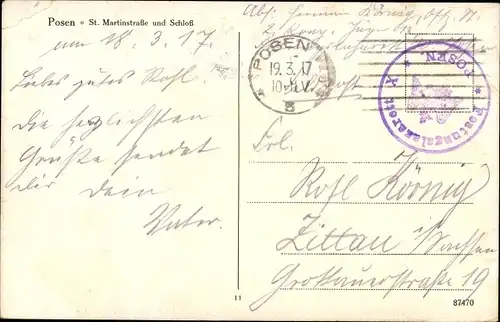 Posen • St. Martinstraße und Schloß
am 18.3.17.
Liebes gutes Rosl.
Die herzlichsten
Grüße sendet
Dir Dein
Vater.
Abs. Hermann König,
POSEN
19.3.17
10-11V.
* 5 *
Festungslazarett X
POSEN
Frl.
Rosl König
Zittau i/Sachsen
Grottauerstraße 19
11
87470